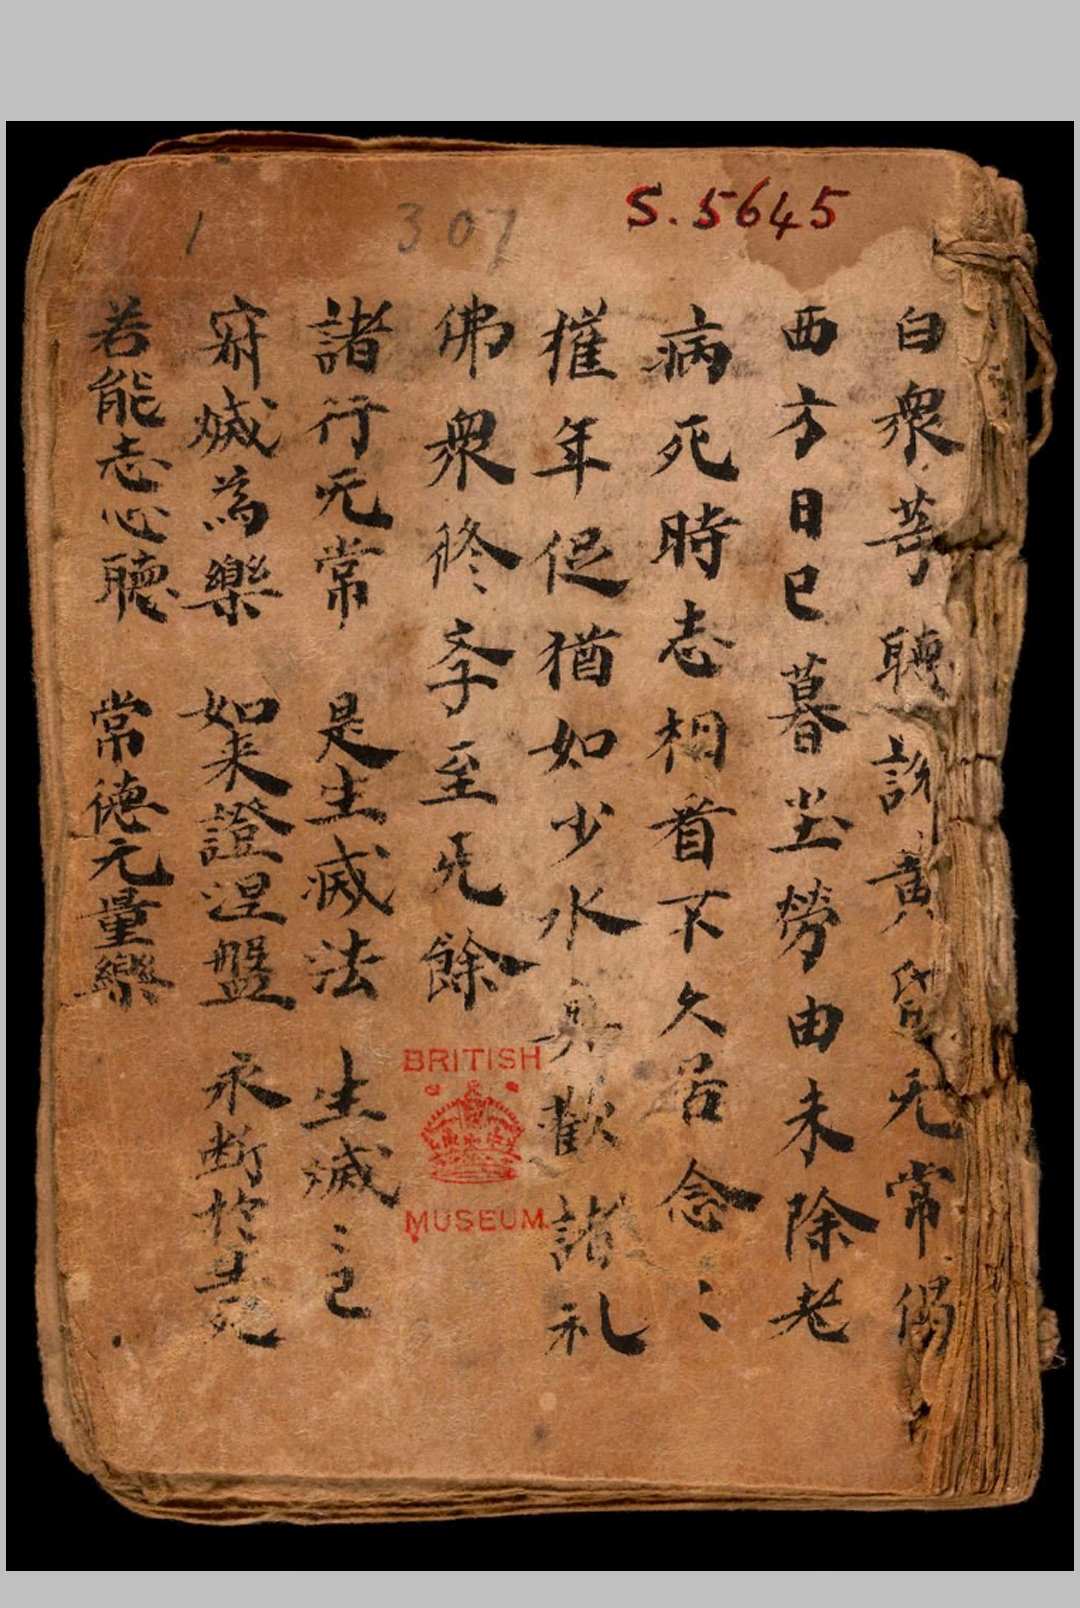 S.5645
1 307
白衆等聽說黃昏无常偈
西方日已暮坐勞由未除老
病死時志相看不久居念〻
摧年促猶如少水魚歡諸礼
佛衆修斈至无餘
諸行无常 是生滅法 生滅〻已
寂滅爲樂 如来證涅盤 永断於生死
若能志心聽 常德无量樂
BRITISH
MUSEUM